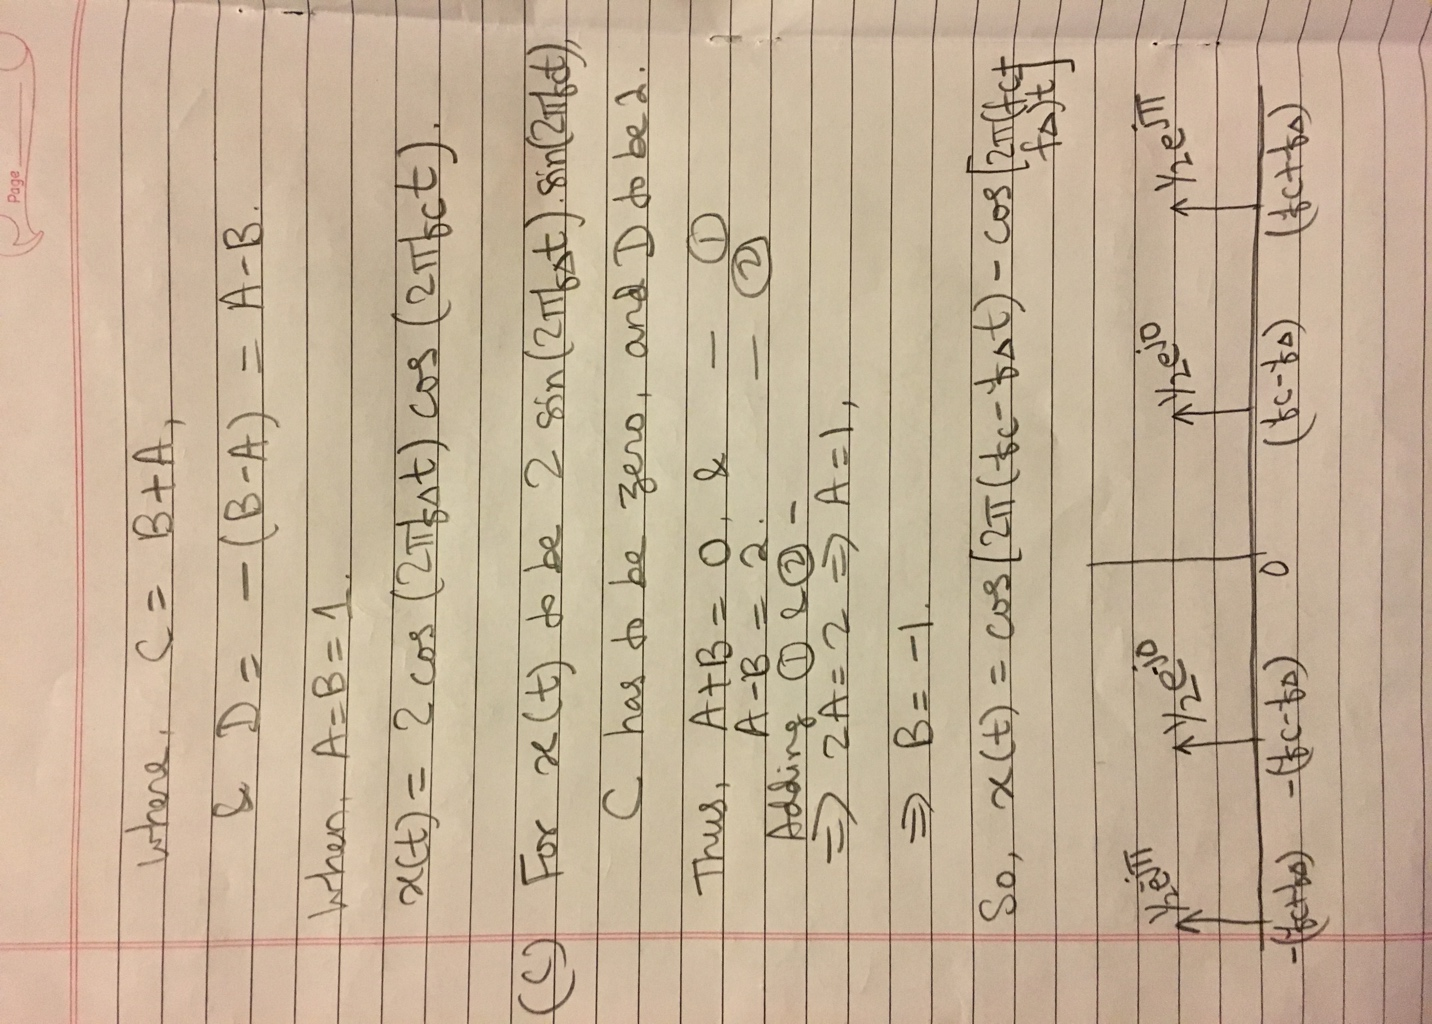 Page
where, C = B+A,
& D = -(B-A) = A-B.
When, A=B=1.
x(t) = 2 cos(2πf∆t) cos(2πfct).
(C) For x(t) to be 2 sin(2πf∆t). sin(2πfct),
C has to be zero, and D to be 2.
Thus, A+B = 0, & — ①
A-B = 2. — ②
Adding ① & ② -
⇒ 2A = 2 ⇒ A=1,
⇒ B = -1.
So, x(t) = cos[2π(fc-f∆t) - cos[2π(fc+
f∆)t]
1/2e^-jπ 1/2e^j0 1/2e^j0 1/2e^jπ
-(fc+f∆) -(fc-f∆) 0 (fc-f∆) (fc+f∆)